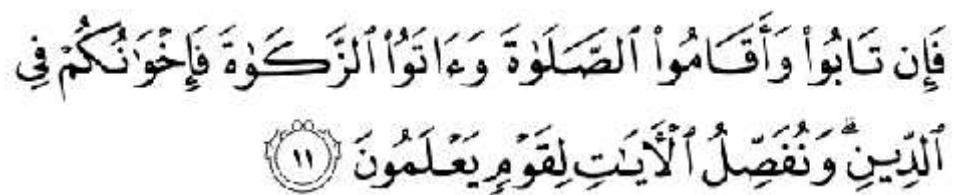 فَإِن تَابُوا۟ وَأَقَامُوا۟ ٱلصَّلَوٰةَ وَءَاتَوُا۟ ٱلزَّكَوٰةَ فَإِخْوَٰنُكُمْ فِى
ٱلدِّينِ ۗ وَنُفَصِّلُ ٱلْأَيَـٰتِ لِقَوْمٍ يَعْلَمُونَ ١١